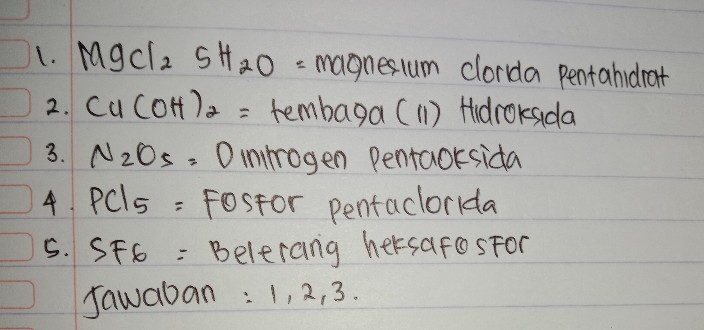 1. MgCl2 5H2O = magnesium clorida pentahidrat
2. Cu(OH)2 = tembaga (11) Hidroksida
3. N2O5 = Dinitrogen Pentaoksida
4. PCl5 = Fosfor pentaclorida
5. SF6 = Belerang heksafosfor
Jawaban : 1, 2, 3.